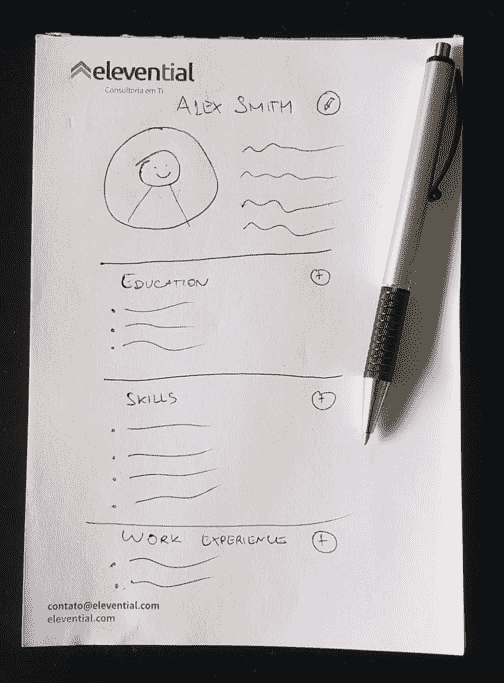 elevential
Consultoria em TI
ALEX SMITH
EDUCATION
SKILLS
WORK EXPERIENCE
contato@elevential.com
elevential.com